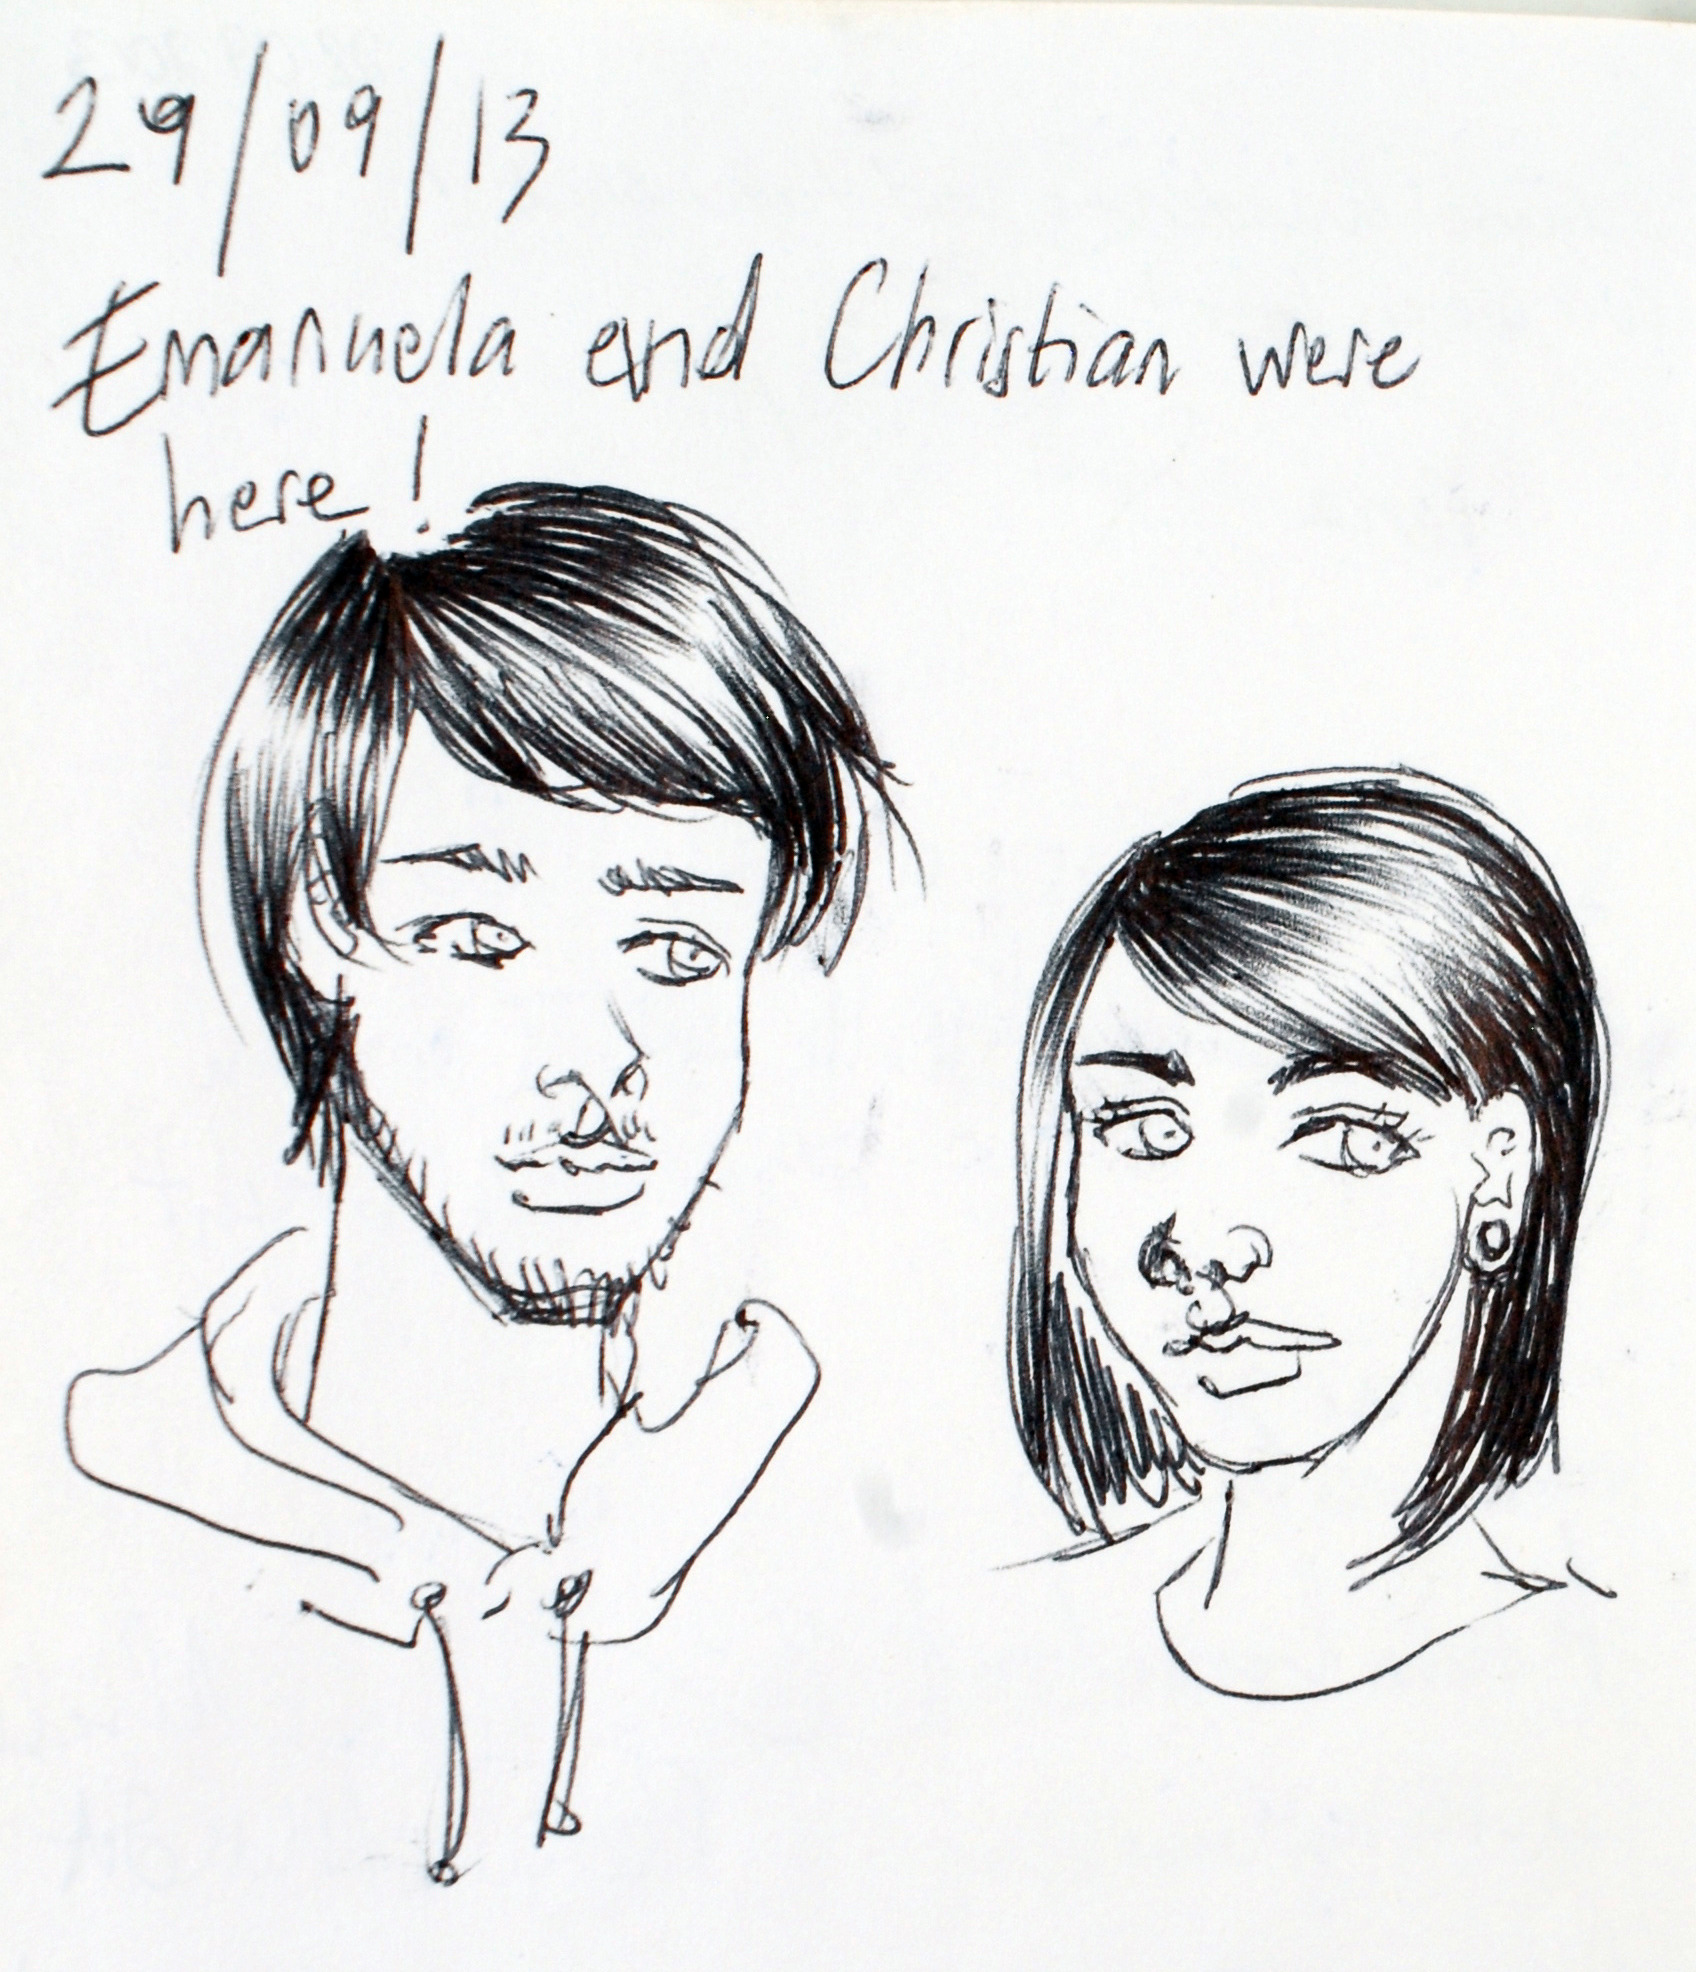 29/09/13
Emanuela and Christian were
here!